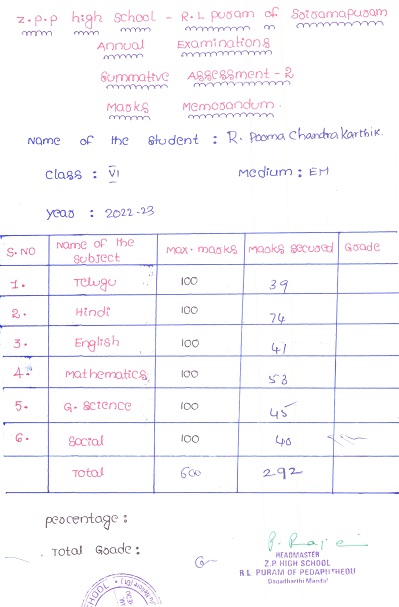 Z.P.P high School - R.L puram of Sriramapuram
Annual Examinations
Summative Assessment - 2
Marks Memorandum.
Name of the student : R. Poorna Chandra Karthik.
class : VI Medium : EM
year : 2022-23
S.NO Name of the subject Max. marks Marks secured Grade
1. Telugu 100 39
2. Hindi 100 74
3. English 100 41
4. Mathematics 100 53
5. G. Science 100 45
6. Social 100 40
Total 600 292
percentage :
Total Grade :
HEADMASTER
Z.P HIGH SCHOOL
R.L PURAM OF
Dasarthi Mandal